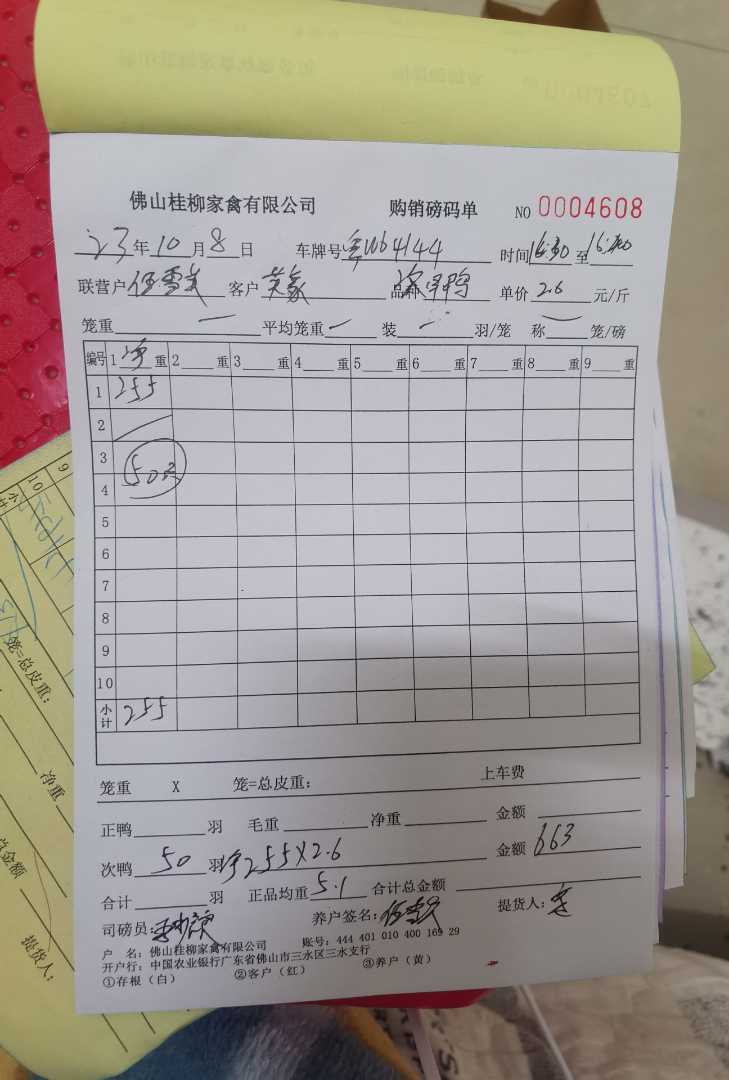 佛山桂柳家禽有限公司 购销磅码单 NO 0004608
23年10月8日 车牌号粤W64144 时间16:30至16:40
联营户伍雪 客户英豪 品种 鸭 单价2.6元/斤
笼重 一 平均笼重 一 装 一 羽/笼 称 一 笼/磅
编号 1净重 2 重 3 重 4 重 5 重 6 重 7 重 8 重 9 重
1 255
2
3
50只
4
5
6
7
8
9
10
小计 255
笼重 X 笼=总皮重: 上车费
正鸭 羽 毛重 净重 金额
次鸭 50 羽 净255X2.6 金额 663
合计 羽 正品均重 5.1 合计总金额
司磅员: 养户签名:伍雪 提货人:
户 名: 佛山桂柳家禽有限公司 账号: 444 401 010 400 169 29
开户行: 中国农业银行广东省佛山市三水区三水支行
①存根(白) ②客户(红) ③养户(黄)
9
10
小计
笼=总皮重:
净重
总金额
提货人: